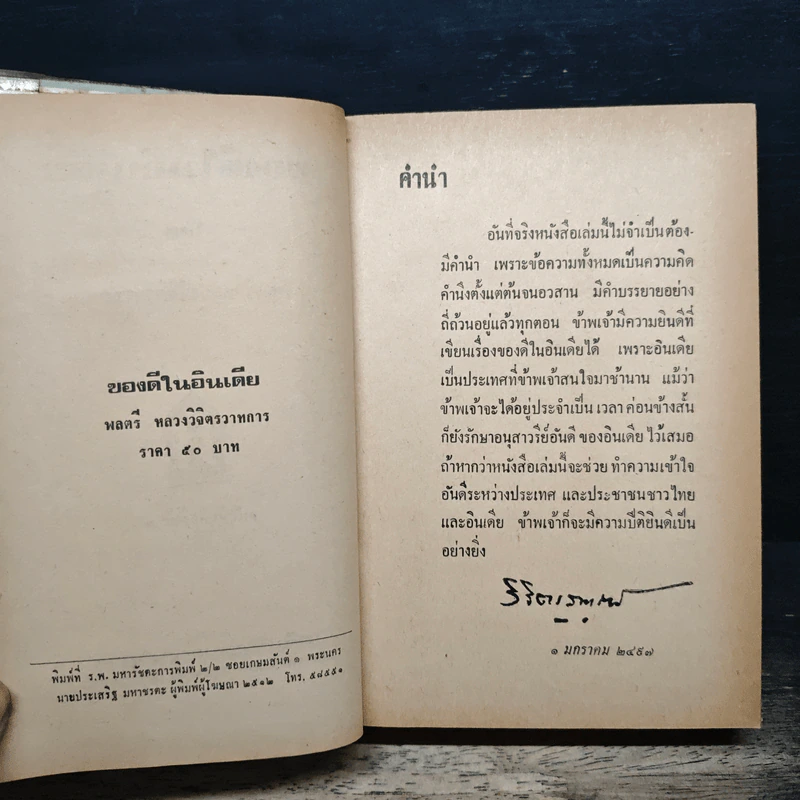 ของดีในอินเดีย
พลตรี หลวงวิจิตรวาทการ
ราคา ๕๐ บาท
พิมพ์ที่ ร.พ. มหารัชตะการพิมพ์ ๒/๒ ซอยเกษมสันต์ ๑ พระนคร
นายประเสริฐ มหาชรตะ ผู้พิมพ์ผู้โฆษณา ๒๕๑๒ โทร. ๕๘๕๕๑
คำนำ
อันที่จริงหนังสือเล่มนี้ไม่จำเป็นต้อง-
มีคำนำ เพราะข้อความทั้งหมดเป็นความคิด
คำนึงตั้งแต่ต้นจนอวสาน มีคำบรรยายอย่าง
ถี่ถ้วนอยู่แล้วทุกตอน ข้าพเจ้ามีความยินดีที่
เขียนเรื่องของดีในอินเดียได้ เพราะอินเดีย
เป็นประเทศที่ข้าพเจ้าสนใจมาช้านาน แม้ว่า
ข้าพเจ้าจะได้อยู่ประจำเป็น เวลา ค่อนข้างสั้น
ก็ยังรักษาอนุสาวรีย์อันดี ของอินเดีย ไว้เสมอ
ถ้าหากว่าหนังสือเล่มนี้จะช่วย ทำความเข้าใจ
อันดีระหว่างประเทศ และประชาชนชาวไทย
และอินเดีย ข้าพเจ้าก็จะมีความปีติยินดีเป็น
อย่างยิ่ง
๑ มกราคม ๒๔๙๗